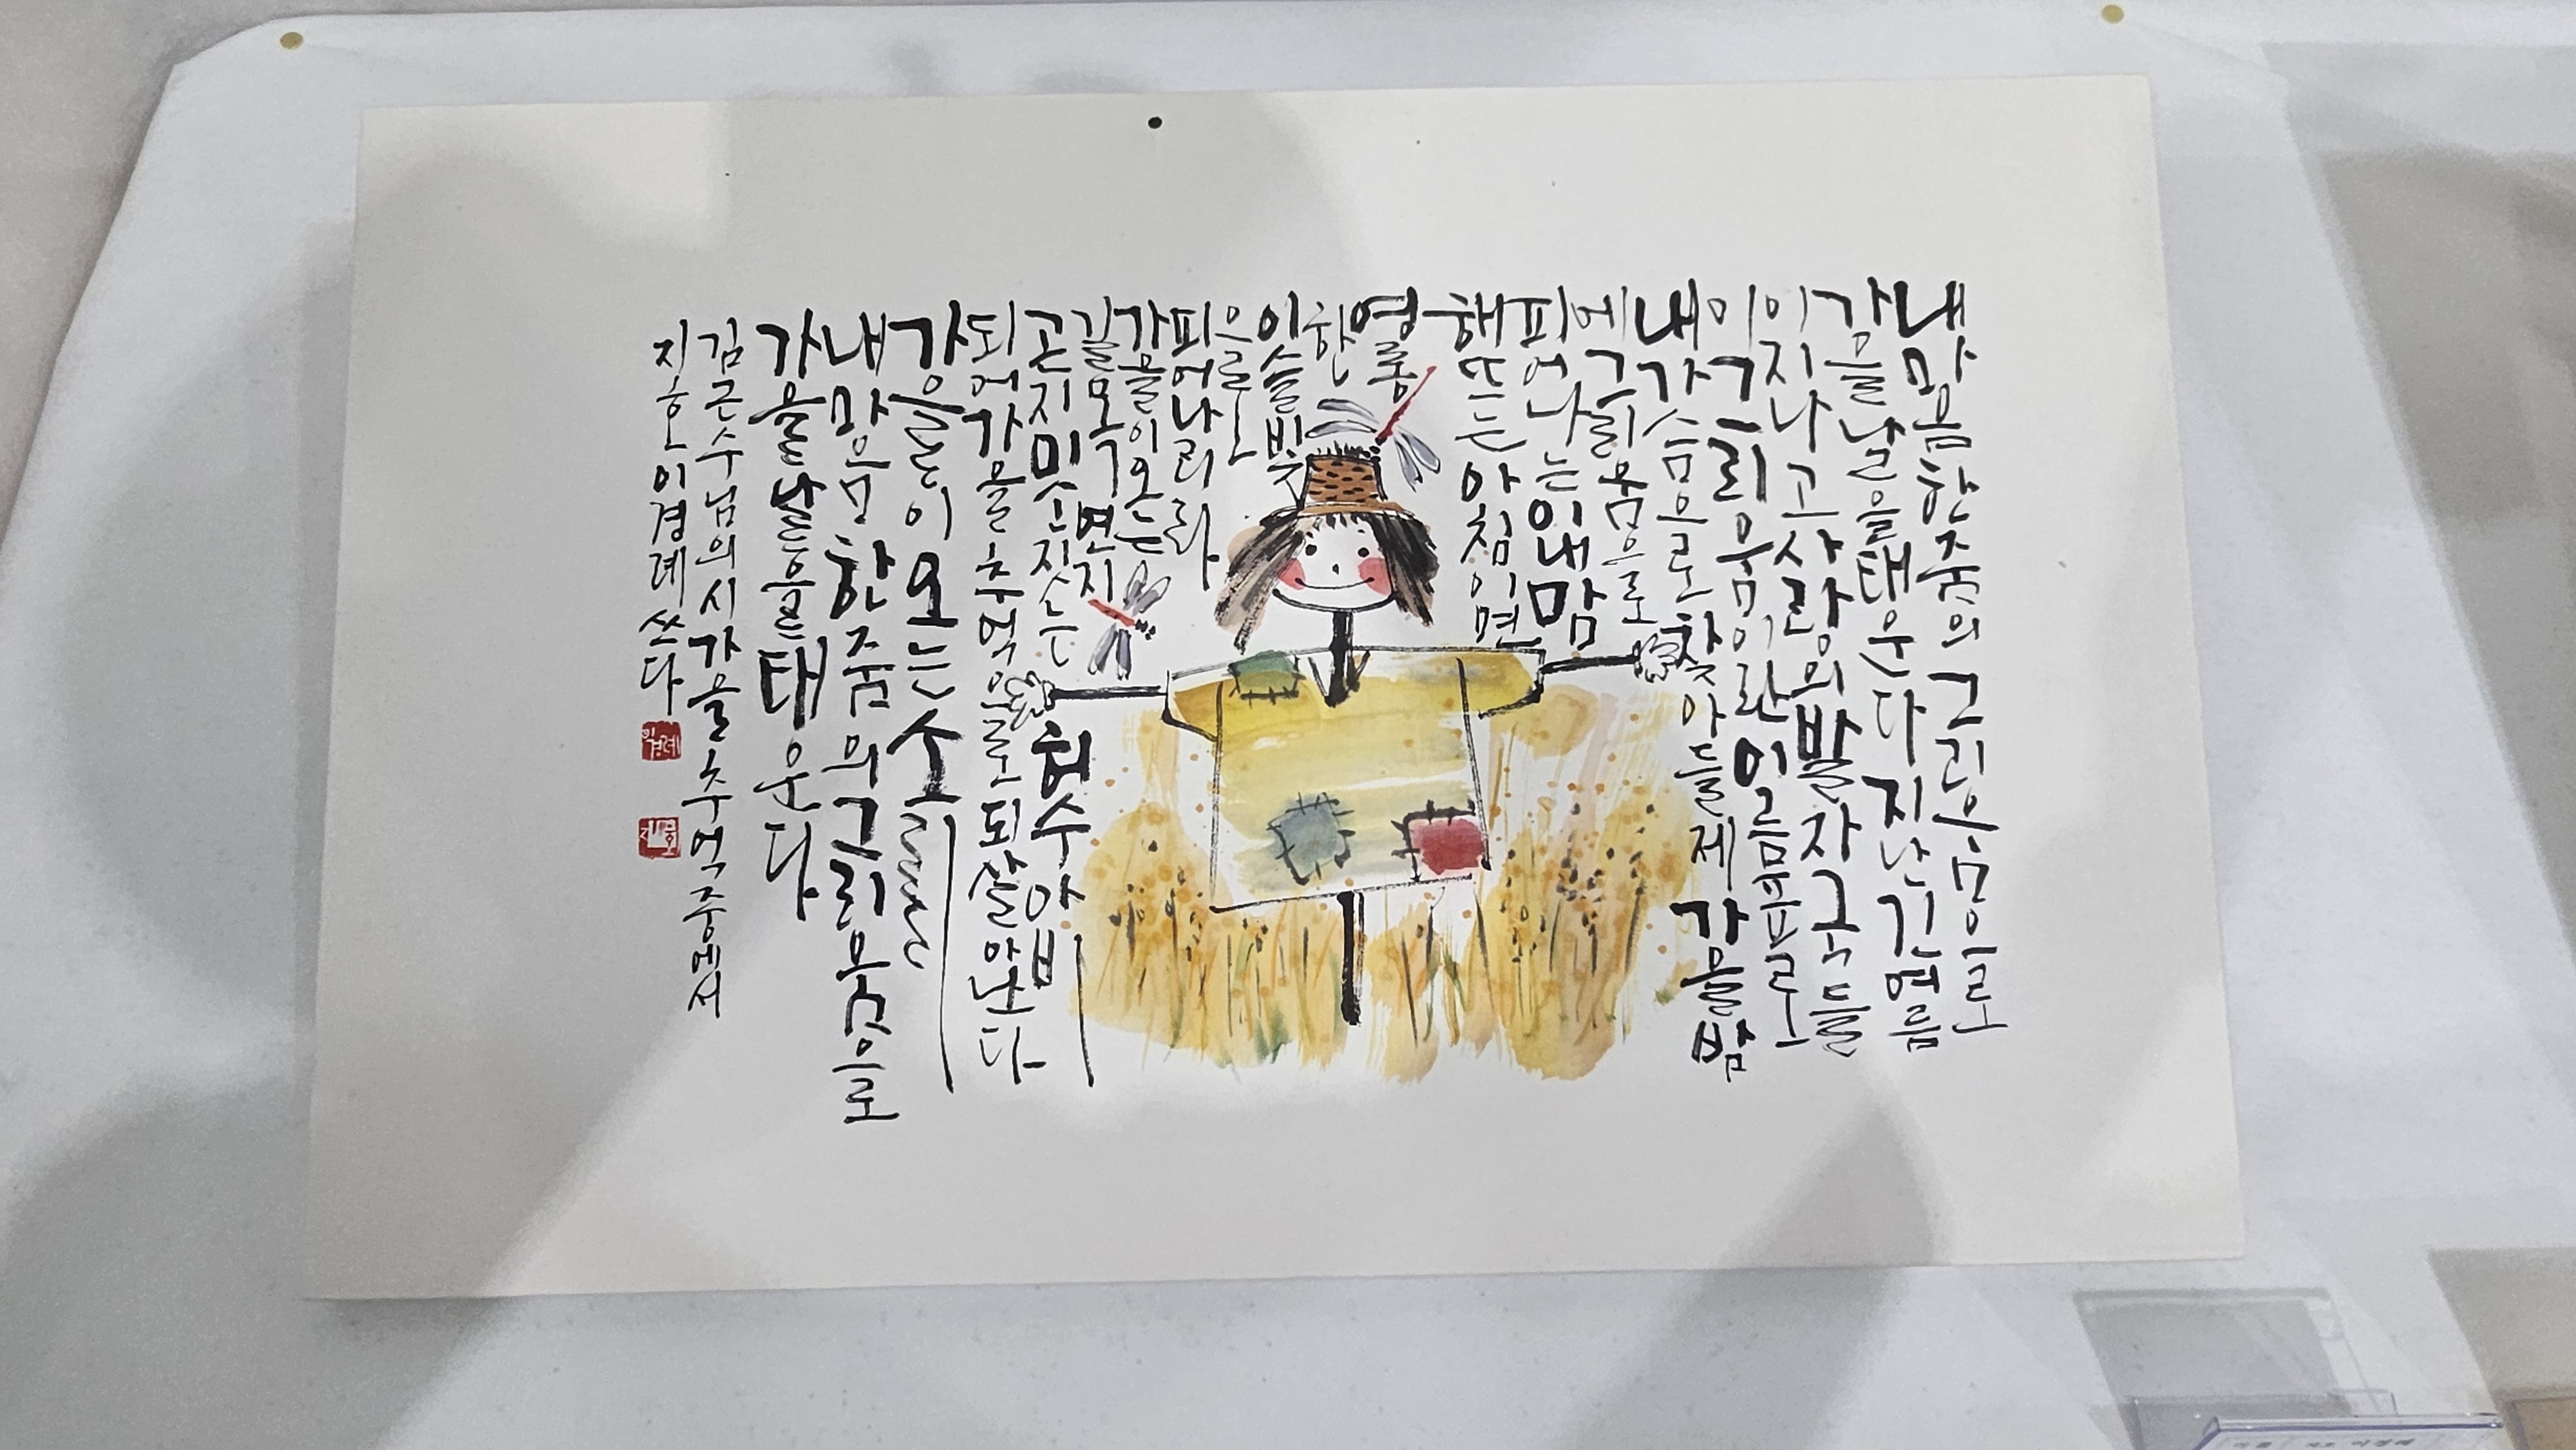 내 마음 한 줌의 그리움으로
가을날을 태운다 지난 긴 여름
이 지나고 사랑의 발자국들
이 그리움이란 이름표로
내 가슴으로 찾아들 제 가을밤
에 그리움으로
피어나는 이내 맘
해 뜨는 아침이면
영롱
한
이슬빛
으로
피어나리라
가을이 오는
길목 연지
곤지 미소 짓는 허수아비
되어 가을 추억으로 되살아난다
가을이 오는 소리
내 마음 한 줌의 그리움으로
가을날을 태운다
김근수님의 시 가을 추억 중에서
지호 이경례 쓰다
이경례
지호